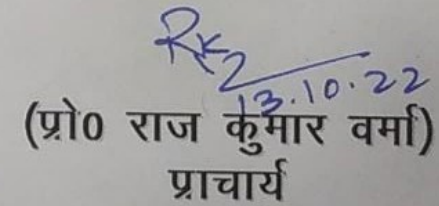 13.10.22
(प्रो0 राज कुमार वर्मा)
प्राचार्य